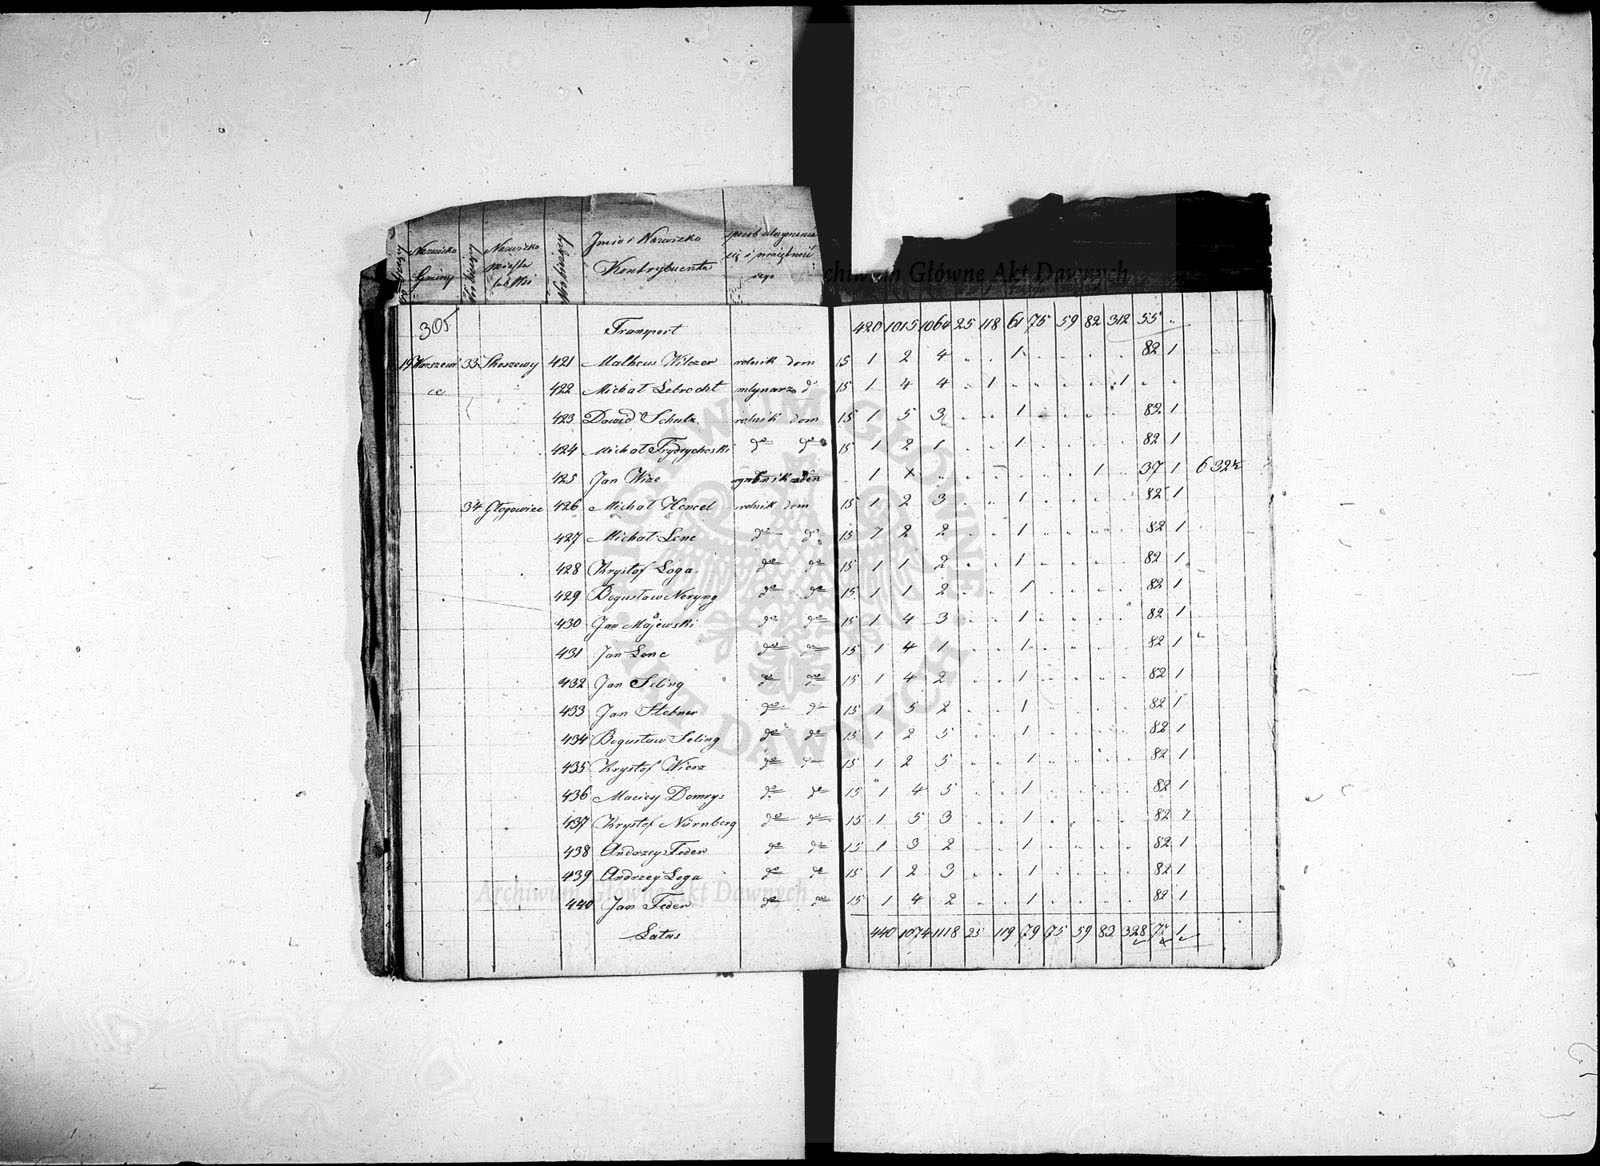 Nazwisko Gminy Nazwisko Jmie i Nazwisko Kontrybuenta
Archiwum Główne Akt Dawnych
305 Transport 420 1015 1064 25 118 61 75 59 82 312 55 ..
19 33 421 Matheus Wilczer rolnik dom 15 1 2 4 . . 1 . . . . 82 1
ce 422 Michał Lebrecht mlynarz do 15 1 4 4 . 1 . . . . 1 . .
423 Dawid Schulz rolnik dom 15 1 5 3 . . 1 . . . . 82 1
424 Michał Frydrychoski do do 15 1 2 1 . . 1 . . . . 82 1
425 Jan Wize . 1 . . . . . . . 1 . 37 1 6 32
34 Głogowiec 426 Michał Hencel rolnik dom 15 1 2 3 . . 1 . . . . 82 1
427 Michał Lenc do do 15 1 2 2 . . 1 . . . . 82 1
428 Krystof Loga do do 15 1 1 2 . . 1 . . . . 82 1
429 Bogusław Neryng do do 15 1 1 2 . . 1 . . . . 82 1
430 Jan Majewski do do 15 1 4 3 . . 1 . . . . 82 1
431 Jan Lenc do do 15 1 4 1 . . 1 . . . . 82 1
432 Jan Seling do do 15 1 4 2 . . 1 . . . . 82 1
433 Jan Stebner do do 15 1 5 2 . . 1 . . . . 82 1
434 Bogusław Seling do do 15 1 2 5 . . 1 . . . . 82 1
435 Krystof Wierz do do 15 1 2 5 . . 1 . . . . 82 1
436 Maciey Domrys do do 15 1 4 5 . . 1 . . . . 82 1
437 Krystof Nürnberg do do 15 1 5 3 . . 1 . . . . 82 1
438 Andrzey Feder do do 15 1 3 2 . . 1 . . . . 82 1
439 Andrzey Loga do do 15 1 2 3 . . 1 . . . . 82 1
440 Jan Feder do do 15 1 4 2 . . 1 . . . . 82 1
Archiwum Główne Akt Dawnych
Latus 440 1074 1118 25 119 79 75 59 83 328 77 1